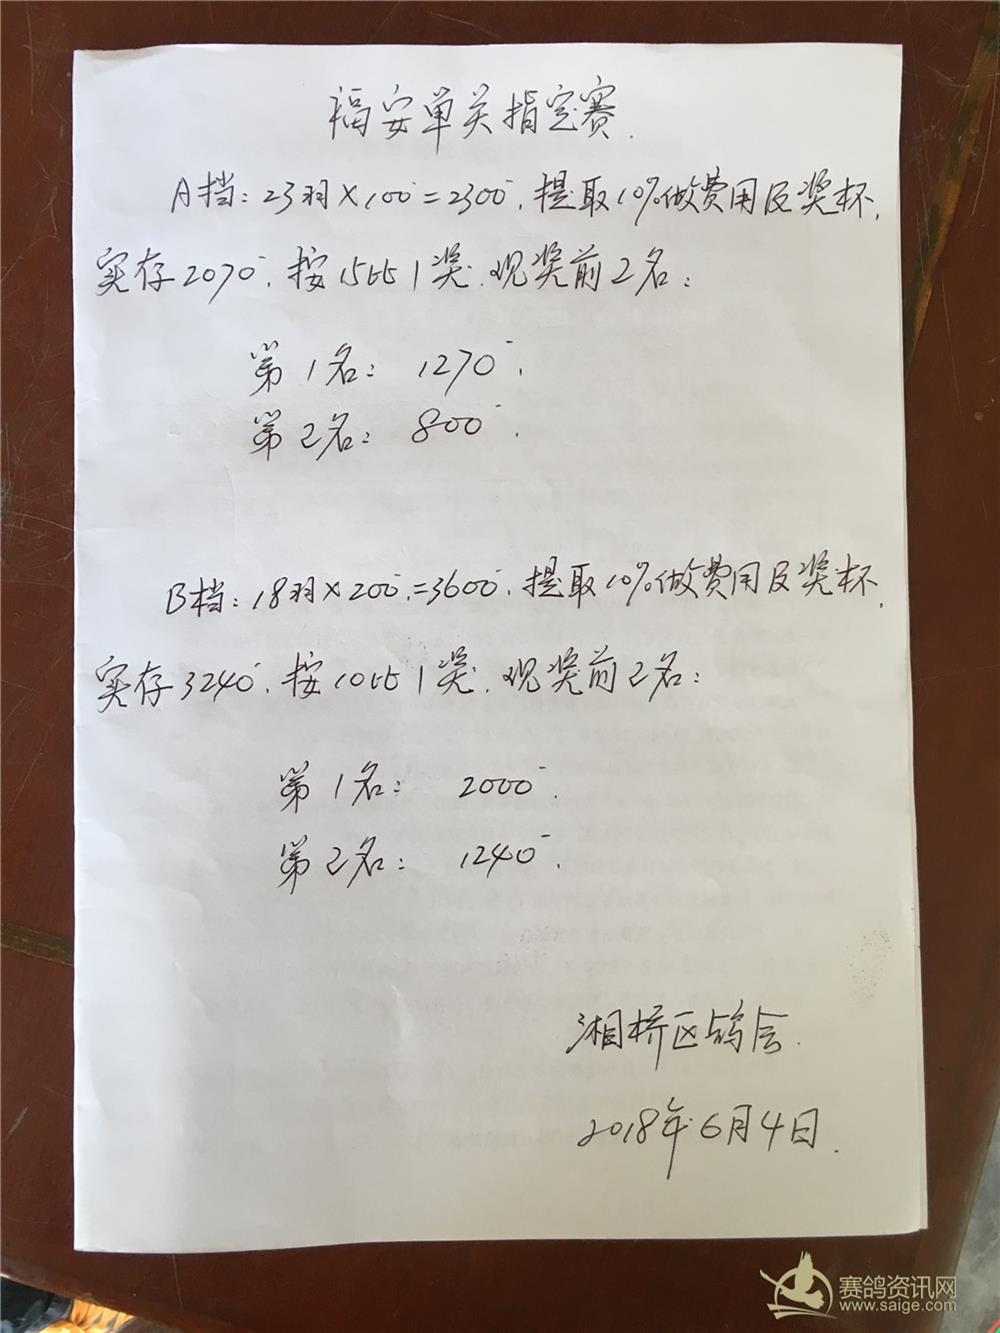 福安单关指定赛.
A挡：23羽×100⁻=2300⁻.提取10%做费用及奖杯,
实存2070⁻.按15比1奖.现奖前2名：
第1名： 1270⁻.
第2名： 800⁻.
B档：18羽×200⁻.=3600⁻.提取10%做费用及奖杯,
实存3240⁻.按10比1奖.现奖前2名：
第1名： 2000⁻.
第2名： 1240⁻.
湘桥区鸽会.
2018年6月4日.
赛鸽资讯网
www.saige.com